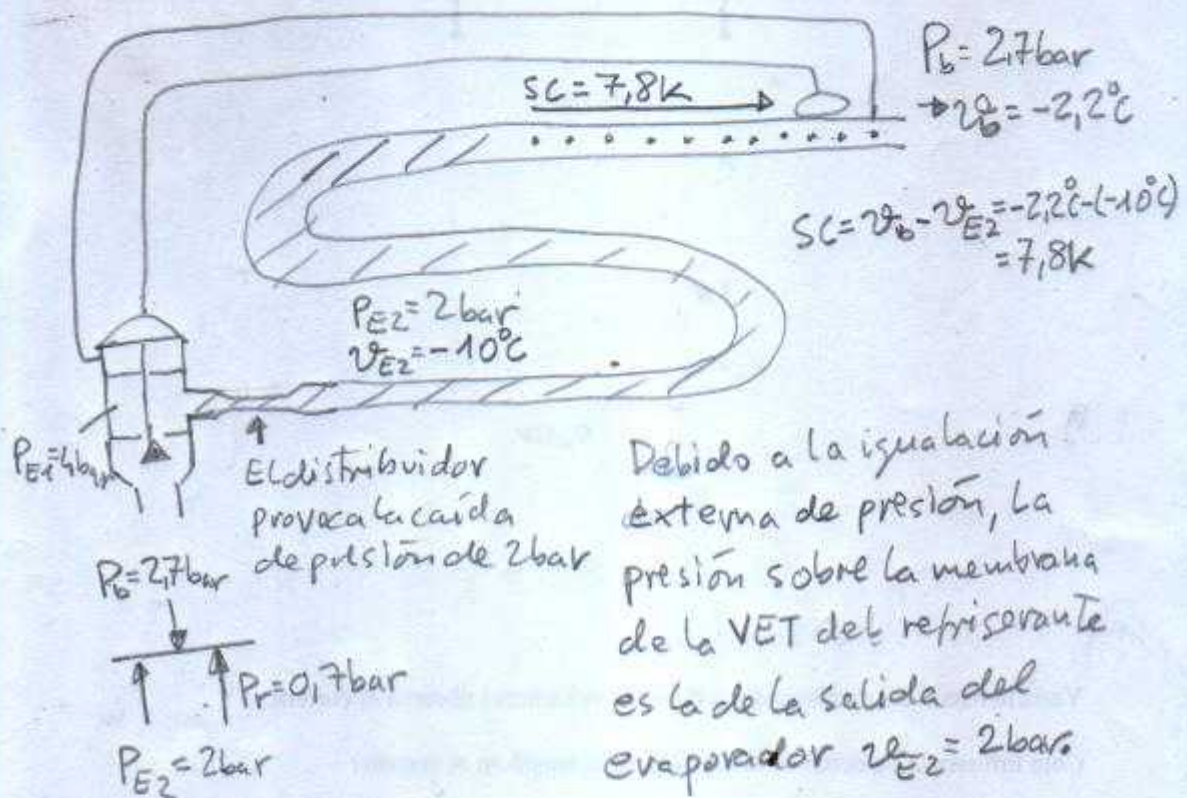 SC = 7,8K
P_b = 2,7bar
→ϑ_b = -2,2°C
SC = ϑ_b - ϑ_E2 = -2,2°C - (-10°C)
= 7,8K
P_E2 = 2bar
ϑ_E2 = -10°C
P_E1 = 4bar
El distribuidor
provoca la caída
de presión de 2bar
P_b = 2,7bar
P_r = 0,7bar
P_E2 = 2bar
Debido a la igualación
externa de presión, la
presión sobre la membrana
de la VET del refrigerante
es la de la salida del
evaporador ϑ_E2 = 2bar.